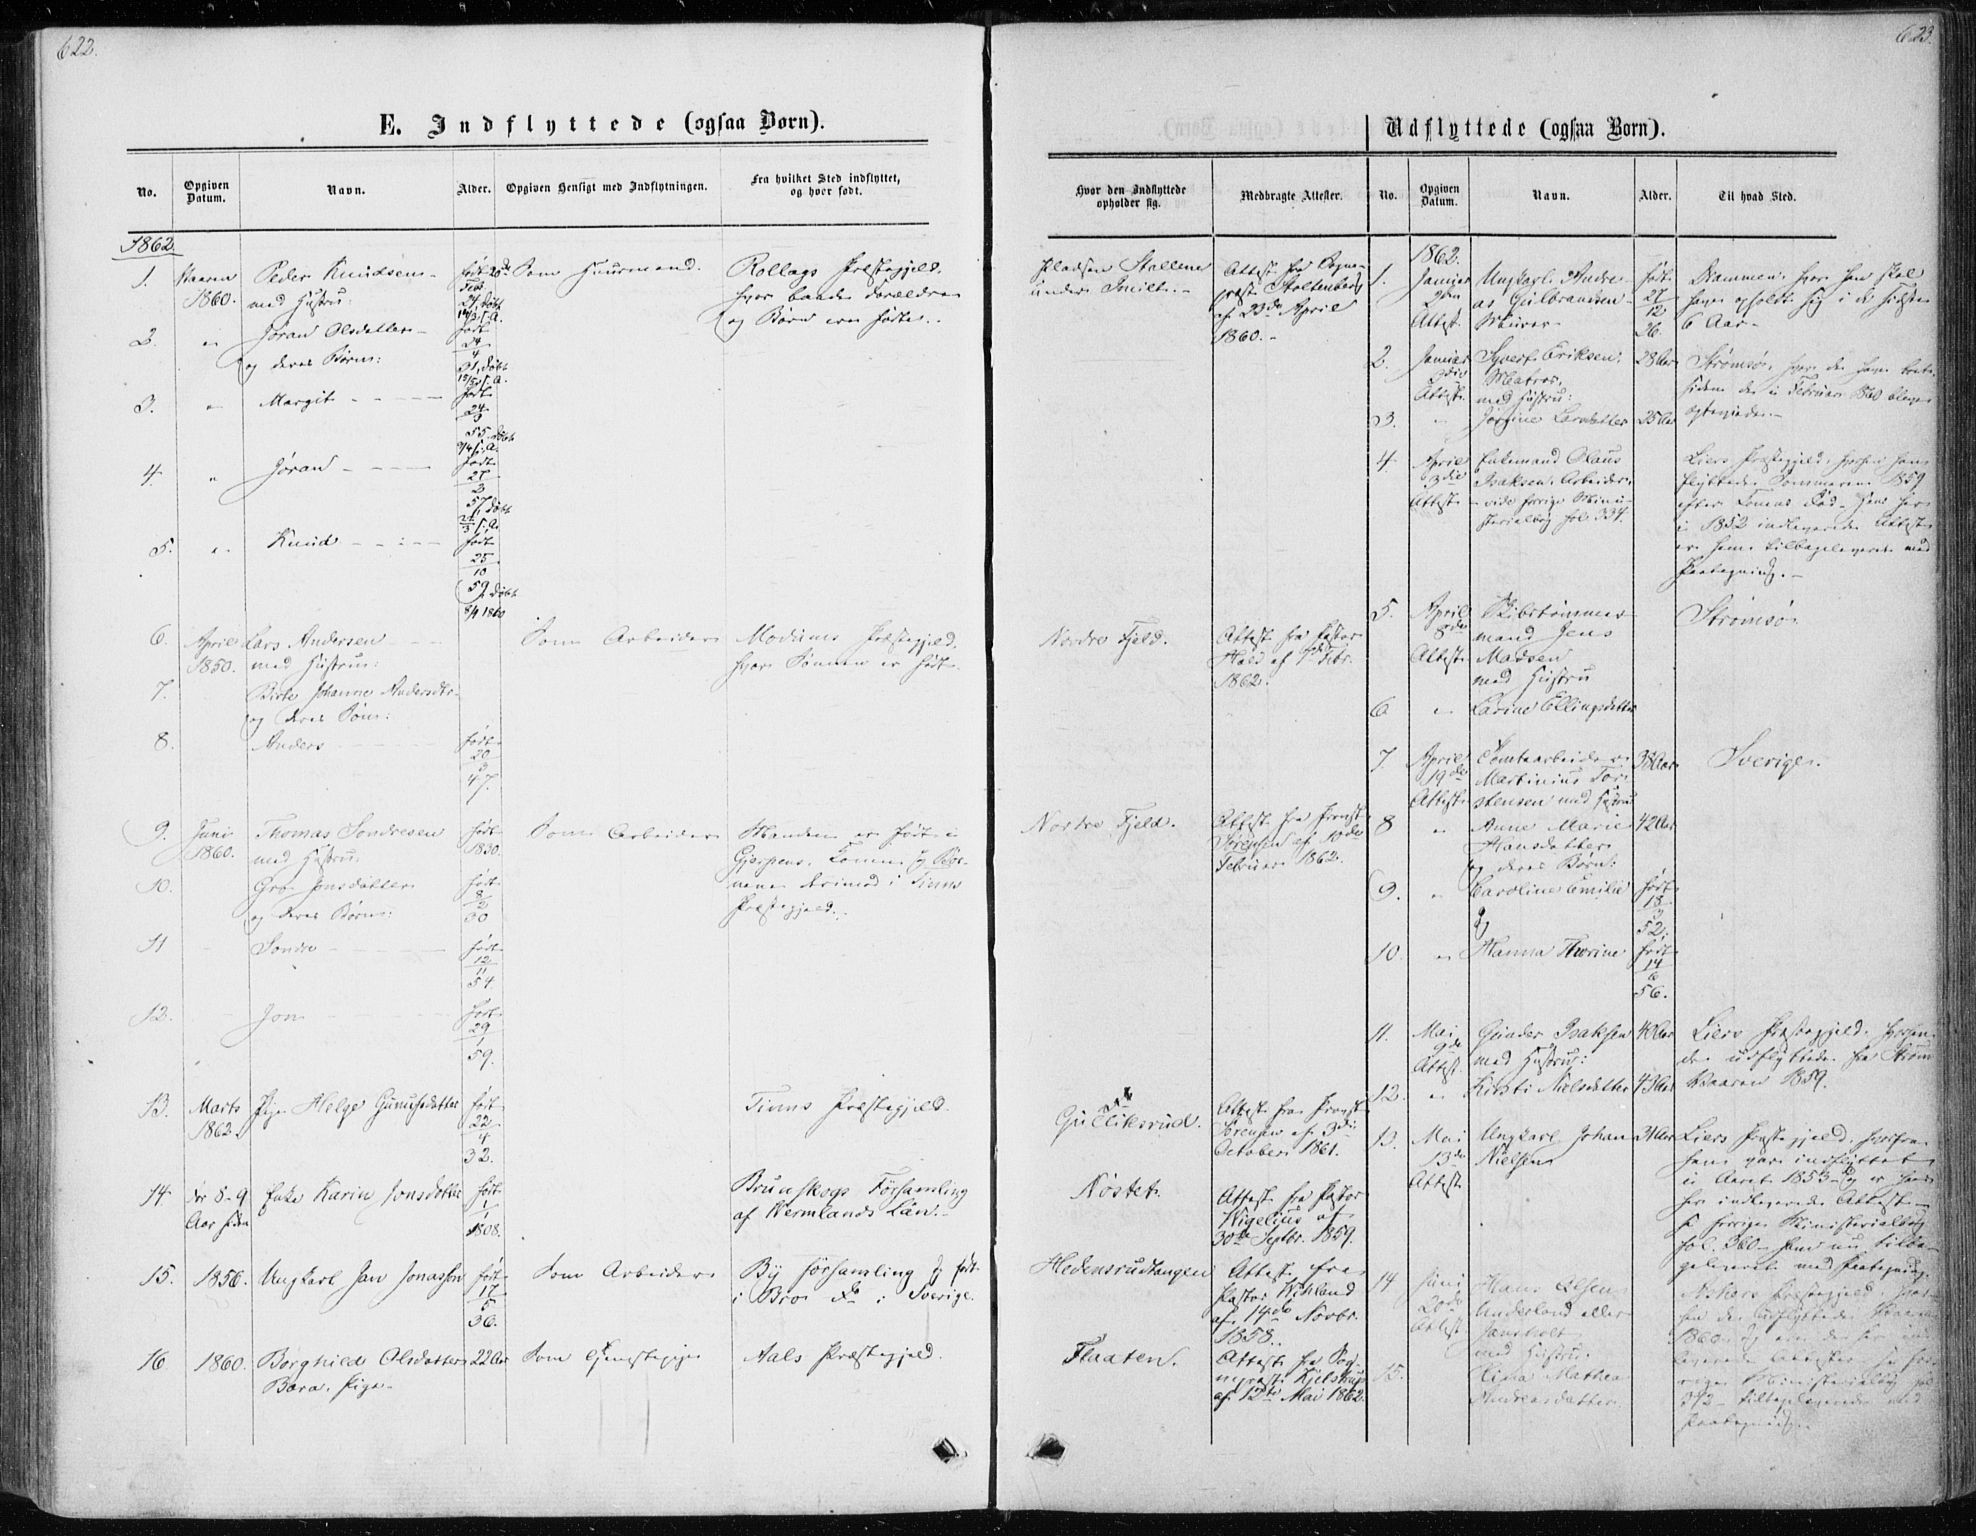 622.
E. Indflyttede (ogsaa Børn).
No.
Opgiven Datum.
Navn.
Alder.
Opgiven Hensigt med Indflytningen.
Fra hvilket Sted indflyttet, og hvor født.
1862.
1. Vaaren 1860. Peder Knudsen
med Hustru:
født
Som Huusmand.
Rollags Præstegjeld,
hvor baade Forældre
og Børn ere fødte.
2. " Jøran Olsdatter
og deres Børn:
født 24/4 31, døbt
3. " Margit
født 24/3 55. døbt 9/4 s. A.
4. " Jøran
født 27/2 57, døbt 22/3 s. A.
5. " Knud
født 25/10 59, døbt 8/1 1860
6. April 1850. Lars Andersen
med Hustru:
Som Arbeider
Modums Præstegjeld,
hvor Sønnen er født.
7. Birte Johanne Andersdtr.
og deres Søn:
8. Anders
født 20/3 47.
9. Juni 1860. Thomas Sondresen
med Hustru:
født 1830.
Som Arbeider
Manden er født i
Gjerpen, Konen og Børnene
derimod i Tinns
Præstegjeld.
10. Gro Jonsdatter
og deres Børn:
født 8/2 30
11 Sondre
født 12/11 54.
12. Jon
født 29/1 59.
13. Marts 1862. Pige Helge Gunulfsdatter
født 22/4 32.
Tinns Præstegjeld.
14. for 8-9 Aar siden
Enke Karin Jonsdatter
født 1/1 1808.
Brunskogs Församling
af Wermlands Län.
15. 1856. Ungkarl Jan Jonasson
født 17/5 36.
Som Arbeider
By Församling og født
i Bro do i Sverige.
16 1860. Borghild Olsdatter
Bara, Pige
22 Aar
Som Tjenestepige
Aals Præstegjeld.
623.
Udflyttede (ogsaa Børn).
Hvor den Indflyttede opholder sig.
Medbragte Attester.
No.
Opgiven Datum.
Navn.
Alder.
Til hvad Sted.
Pladsen Stallene
under Smilt.
Attest fra Sogneprest
Stoltenberg
af 23de April
1860.
Nordre Fjeld.
Attest fra Pastor
Hald af Febr.
1862.
Nordre Fjeld.
Attest fra Provst
Sørensen af 10de
Februar 1862.
Gulliksrud.
Attest fra Provst
Sørensen af 3die
October 1861.
Nøstet.
Attest fra Pastor
Wigelius af
30de Septbr. 1859.
Hedensrudtangen
Attest fra
Pastor Wihland
af 14de Novbr.
1858.
Flaaten.
Attest fra Sogneprest
Kjelstrup
af 12te Mai 1862.
1862.
1. Januar
2den
Attest.
Ungkarl Andreas
Gulbrandsen
Murer
født 27/12 26.
Drammen, hvor han skal
have opholdt sig i de sidste
6 Aar.
2. Januar
3die
Attest.
Syvert Eriksen,
Matros,
med Hustru:
28 Aar
Strømsø, hvor de have boet
siden de i Februar 1860 bleve
egteviede.
3. " Jørgine Larsdatter 25 Aar
4. April
3die
Attest.
Enkemand Olaus
Isaksen, Arbeider,
vide forrige Ministerialbog
fol. 334.
Liers Præstegjeld, hvorhen han
flyttede Sommeren 1859
efter Konens Død. Hans her
i 1852 indleverede Attest
er ham tilbageleveret med
Paategning.
5. April
8de
Attest.
Skibstømmermand
Jens
Madsen
med Hustru
Strømsø.
6 " Karine Ellingsdatter
7. April
19de
Attest
Tomtearbeider
Martinius Torstensen
med Hustru
38 Aar
Sverige.
8 " Anne Marie
Hansdatter
og deres Børn:
42 Aar
9. " Caroline Emilie
og
født 18/3 52.
10. " Hanna Thorine
født 14/6 56.
11. Mai
9de
Attest.
Gunder Isaksen
med Hustru:
40 Aar
Liers Præstegjeld, hvorhen
de udflyttede fra Strøm
Vaaren 1859.
12. " Kirsti Nielsdatter 43 Aar
13. Mai
13de
Attest
Ungkarl Johan
Nielsen
Liers Præstegjeld, hvorfra
han var indflyttet
i Aaret 1853 og er hans
her indleverede Attest
se forrige Ministerialbog
fol. 360 ham nu tilbageleveret
med Paategning.
14 Juni
20de
Attest
Hans Olsen
Underland eller
med Hustru.
Askers Præstegjeld, hvorhen
de udflyttede Vaaren
1860
se forrige
Ministerialbog fol.
372 tilbageleverede med
Paategning.
15. Mathea
Andreasdatter.